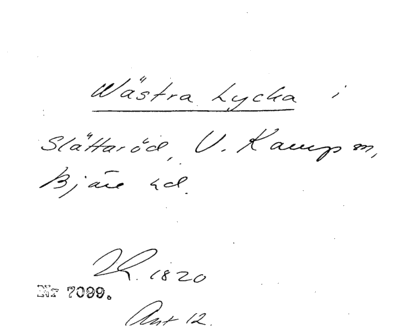 Wästra Lycka i
Slättaröd, V. Karup sn,
Bjäre hd.
1820
Nr 7099.
Ant 12.